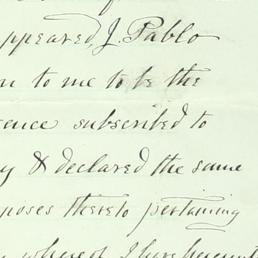 appeared, J. Pablo
n to me to be the
ence subscribed to
y & declared the same
poses thereto pertaining
whereof I have hereunt